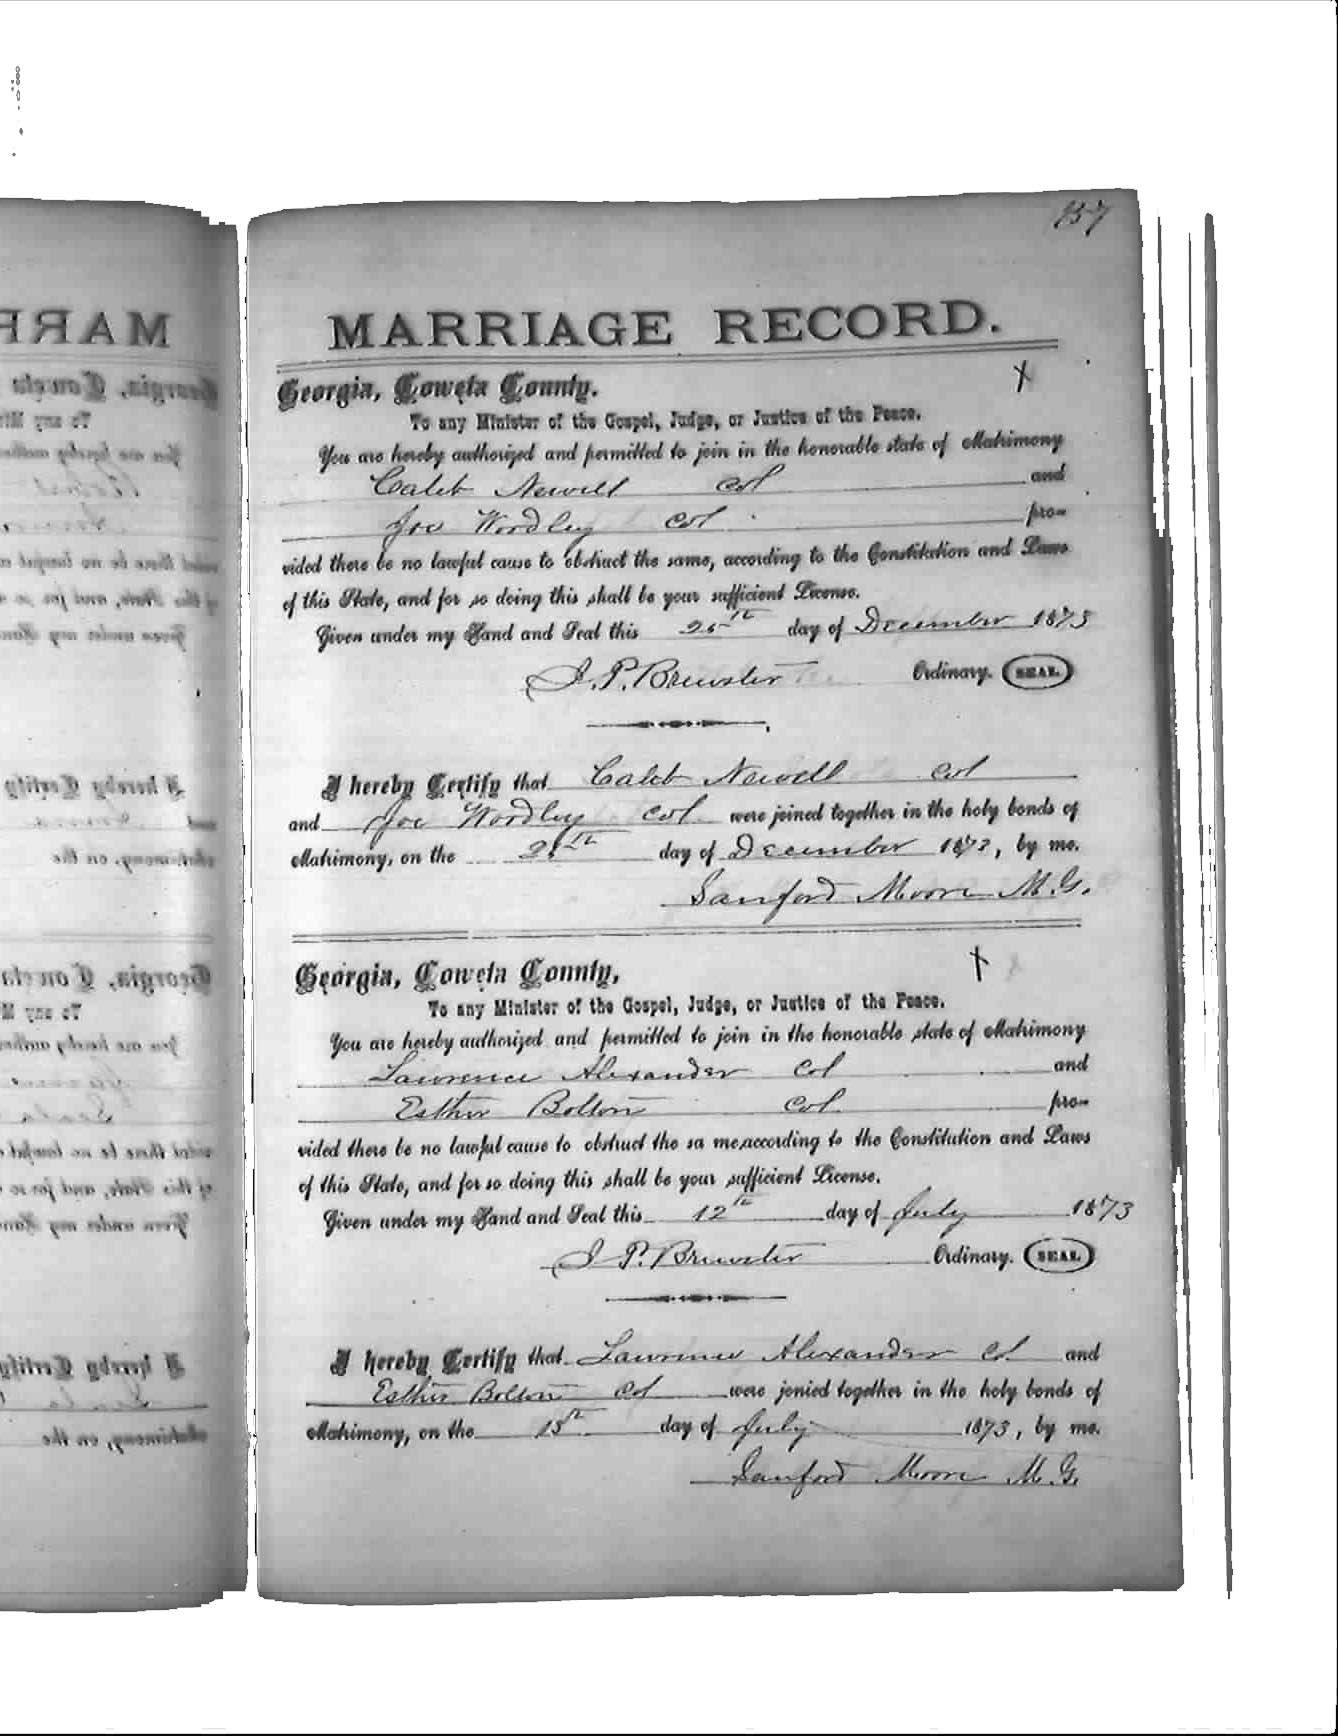 157
MARRIAGE RECORD.
Georgia, Coweta County.
To any Minister of the Gospel, Judge, or Justice of the Peace.
You are hereby authorized and permitted to join in the honorable state of Matrimony
Caleb Newell Col and
Joe Wordley Col pro-
vided there be no lawful cause to obstruct the same, according to the Constitution and Laws
of this State, and for so doing this shall be your sufficient License.
Given under my Hand and Seal this 25th day of December 1873
J. P. Brewster Ordinary. SEAL
I hereby Certify that Caleb Newell Col
and Joe Wordley Col were joined together in the holy bonds of
Matrimony, on the 25th day of December 1873, by me.
Sanford Moore M. G.
Georgia, Coweta County,
To any Minister of the Gospel, Judge, or Justice of the Peace.
You are hereby authorized and permitted to join in the honorable state of Matrimony
Lawrence Alexander Col and
Esther Bolton Col pro-
vided there be no lawful cause to obstruct the sa me, according to the Constitution and Laws
of this State, and for so doing this shall be your sufficient License.
Given under my Hand and Seal this 12th day of July 1873
J. P. Brewster Ordinary. SEAL
I hereby Certify that Lawrence Alexander Col and
Esther Bolton Col were jonied together in the holy bonds of
Matrimony, on the 13th day of July 1873, by me.
Sanford Moore M. G.